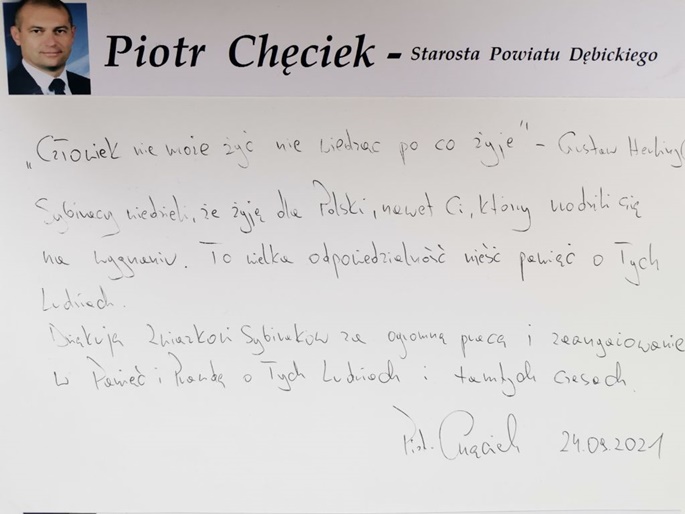 Piotr Chęciek – Starosta Powiatu Dębickiego
„Człowiek nie może żyć nie wiedząc po co żyje" – Gustaw Herling
Sybiracy wiedzieli, że żyją dla Polski, nawet Ci, którzy urodzili się
na wygnaniu. To wielka odpowiedzialność nieść pamięć o Tych
Ludziach.
Dziękuję Związkowi Sybiraków za ogromną pracę i zaangażowanie
w Pamięć i Prawdę o Tych Ludziach i tamtych czasach.
Piotr Chęciek 24.09.2021